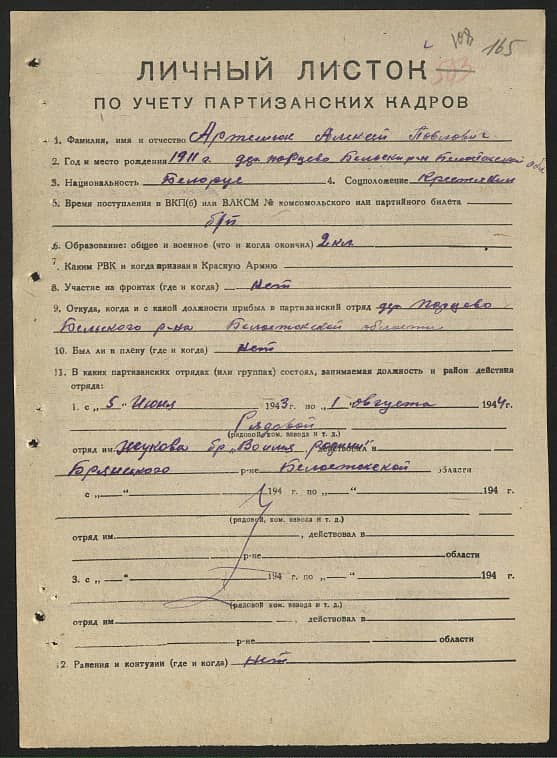 108
165
583
ЛИЧНЫЙ ЛИСТОК
ПО УЧЕТУ ПАРТИЗАНСКИХ КАДРОВ
1. Фамилия, имя и отчество Артемюк Алексей Павлович
2. Год и место рождения 1911 г. дер. Бельский р-н Белостокской обл
3. Национальность Белорус 4. Соцположение Крестьянин
5. Время поступления в ВКП(б) или ВЛКСМ № комсомольского или партийного билета
б/п
6. Образование: общее и военное (что и когда окончил) 2 кл
7. Каким РВК и когда призван в Красную Армию
8. Участие на фронтах (где и когда) нет
9. Откуда, когда и с какой должности прибыл в партизанский отряд дер.
Бельского р-на Белостокской области
10. Был ли в плену (где и когда) нет
11. В каких партизанских отрядах (или группах) состоял, занимаемая должность и район действия
отряда:
1. с „ 5 " Июня 1943 г. по „ 1 " Августа 1944 г.
Рядовой
(рядовой, ком. взвода и т. д.)
отряд им Жукова бр. действовал в
Брянского р-не Белостокской области
с „ — " 194 г. по „ — " 194 г.
(рядовой, ком. взвода и т. д.)
отряд им , действовал в
р-не области
3. с „ — " 194 г. по „ — " 194 г.
(рядовой, ком. взвода и т. д.)
отряд им , действовал в
р-не области
2. Ранения и контузии (где и когда) нет